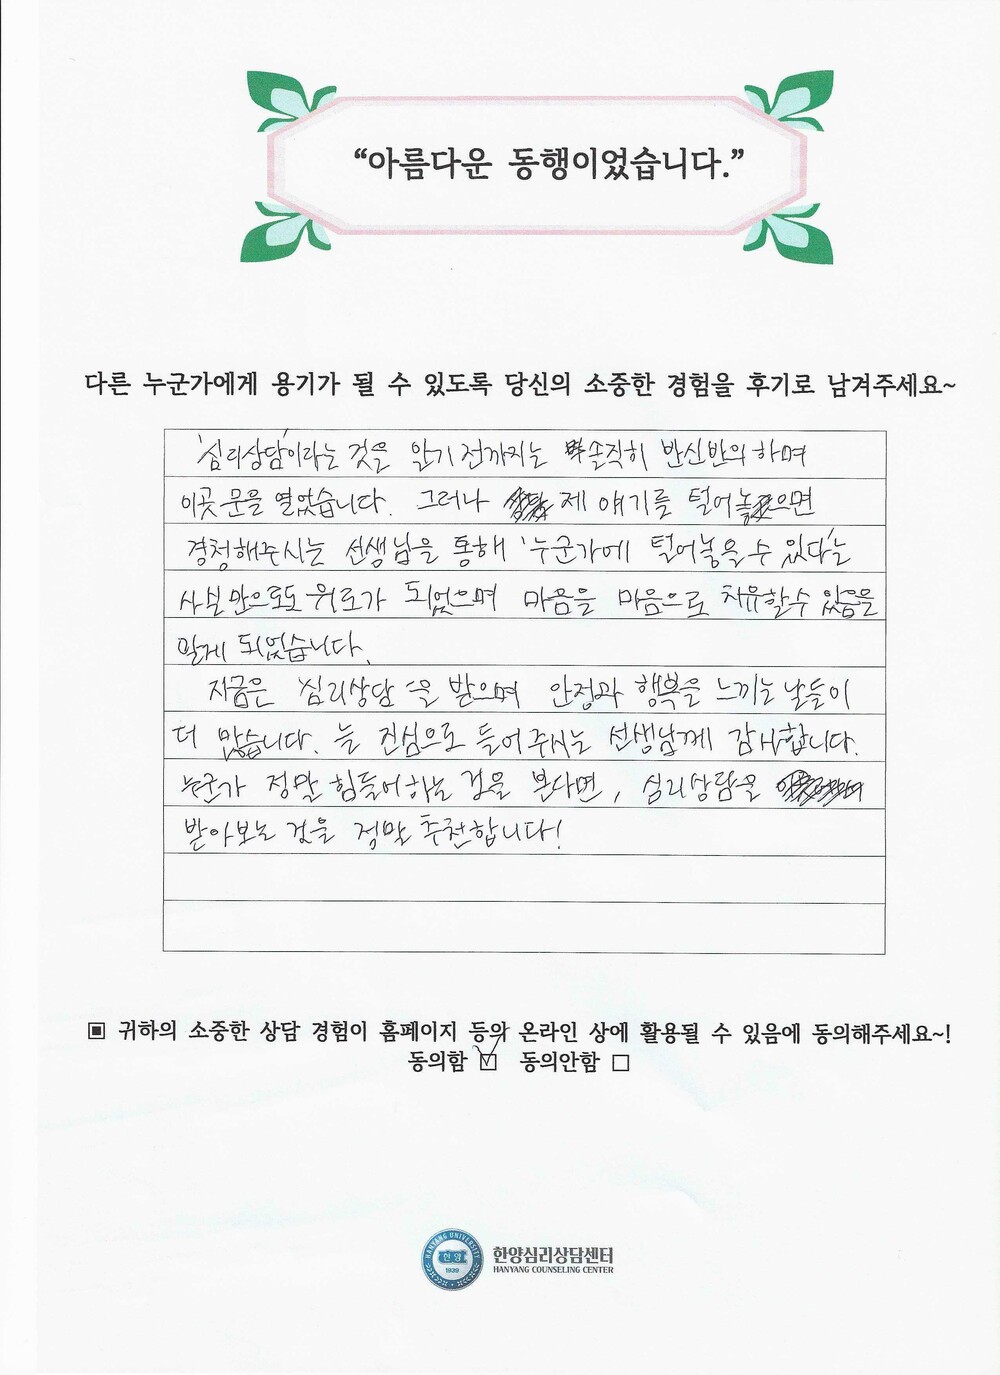 “아름다운 동행이었습니다.”
다른 누군가에게 용기가 될 수 있도록 당신의 소중한 경험을 후기로 남겨주세요~
'심리상담'이라는 것을 알기 전까지는 솔직히 반신반의 하며
이곳 문을 열었습니다. 그러나 제 얘기를 털어놓으면
경청해주시는 선생님을 통해 '누군가에 털어놓을 수 있다'는
사실만으로도 위로가 되었으며 마음을 마음으로 치유할수 있음을
알게 되었습니다.
지금은 '심리상담'을 받으며 안정과 행복을 느끼는 날들이
더 많습니다. 늘 진심으로 들어주시는 선생님께 감사합니다.
누군가 정말 힘들어하는 것을 본다면, 심리상담을
받아보는 것을 정말 추천합니다!
▣ 귀하의 소중한 상담 경험이 홈페이지 등의 온라인 상에 활용될 수 있음에 동의해주세요~!
동의함 ☑ 동의안함 □
HANYANG UNIVERSITY
한양
1939
한양심리상담센터
HANYANG COUNSELING CENTER